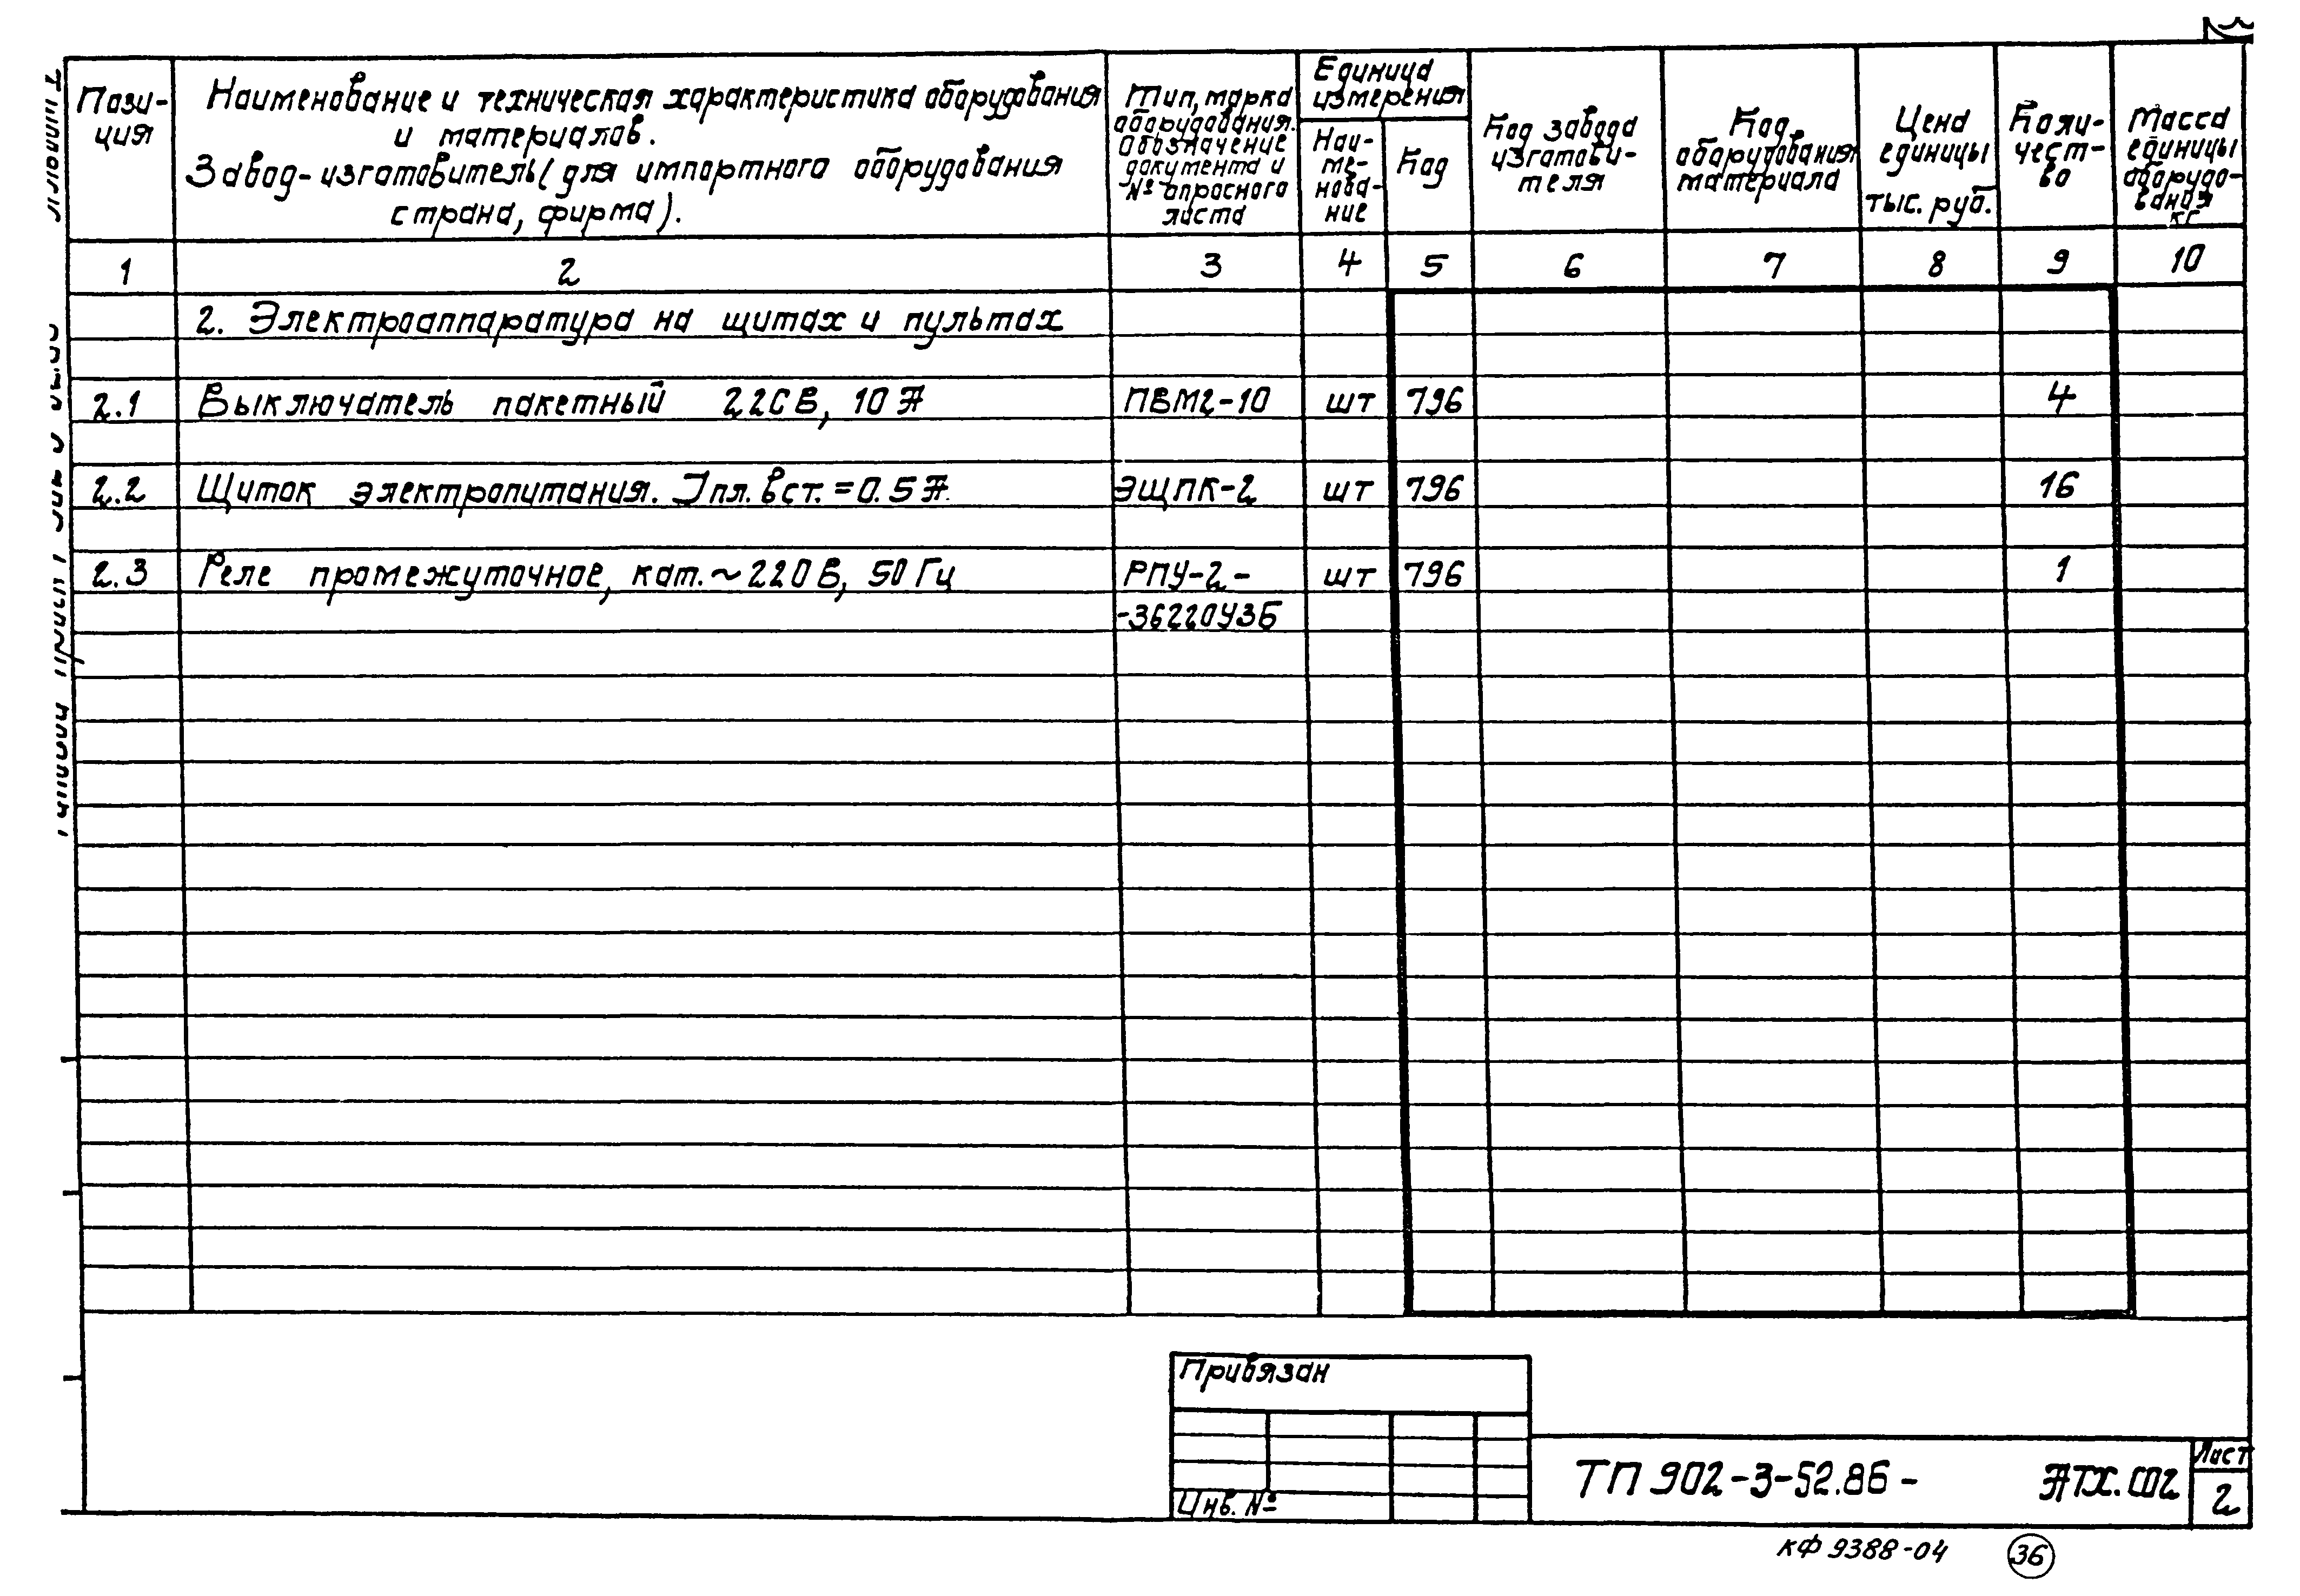 Пози-
ция
Наименование и техническая характеристика оборудования
и материалов.
Завод-изготовитель (для импортного оборудования
страна, фирма).
Тип, марка
оборудования.
Обозначение
документа и
№ опросного
листа
Единица
измерения
Наи-
ме-
нова-
ние
Код
Код завода
изготови-
теля
Код
оборудования
материала
Цена
единицы
тыс. руб.
Коли-
чест-
во
Масса
единицы
оборудо-
вания
кг
1 2 3 4 5 6 7 8 9 10
2. Электроаппаратура на щитах и пультах
2.1 Выключатель пакетный 220В, 10А ПВМ2-10 шт 796 4
2.2 Щиток электропитания. Iпл.вст.=0.5А ЭЩПК-2 шт 796 16
2.3 Реле промежуточное, кат.~220В, 50Гц РПУ-2- шт 796 1
-36220У3Б
Привязан
Инв. №
ТП 902-3-52.86- АТХ.СО2
Лист
2
КФ 9388-04 36